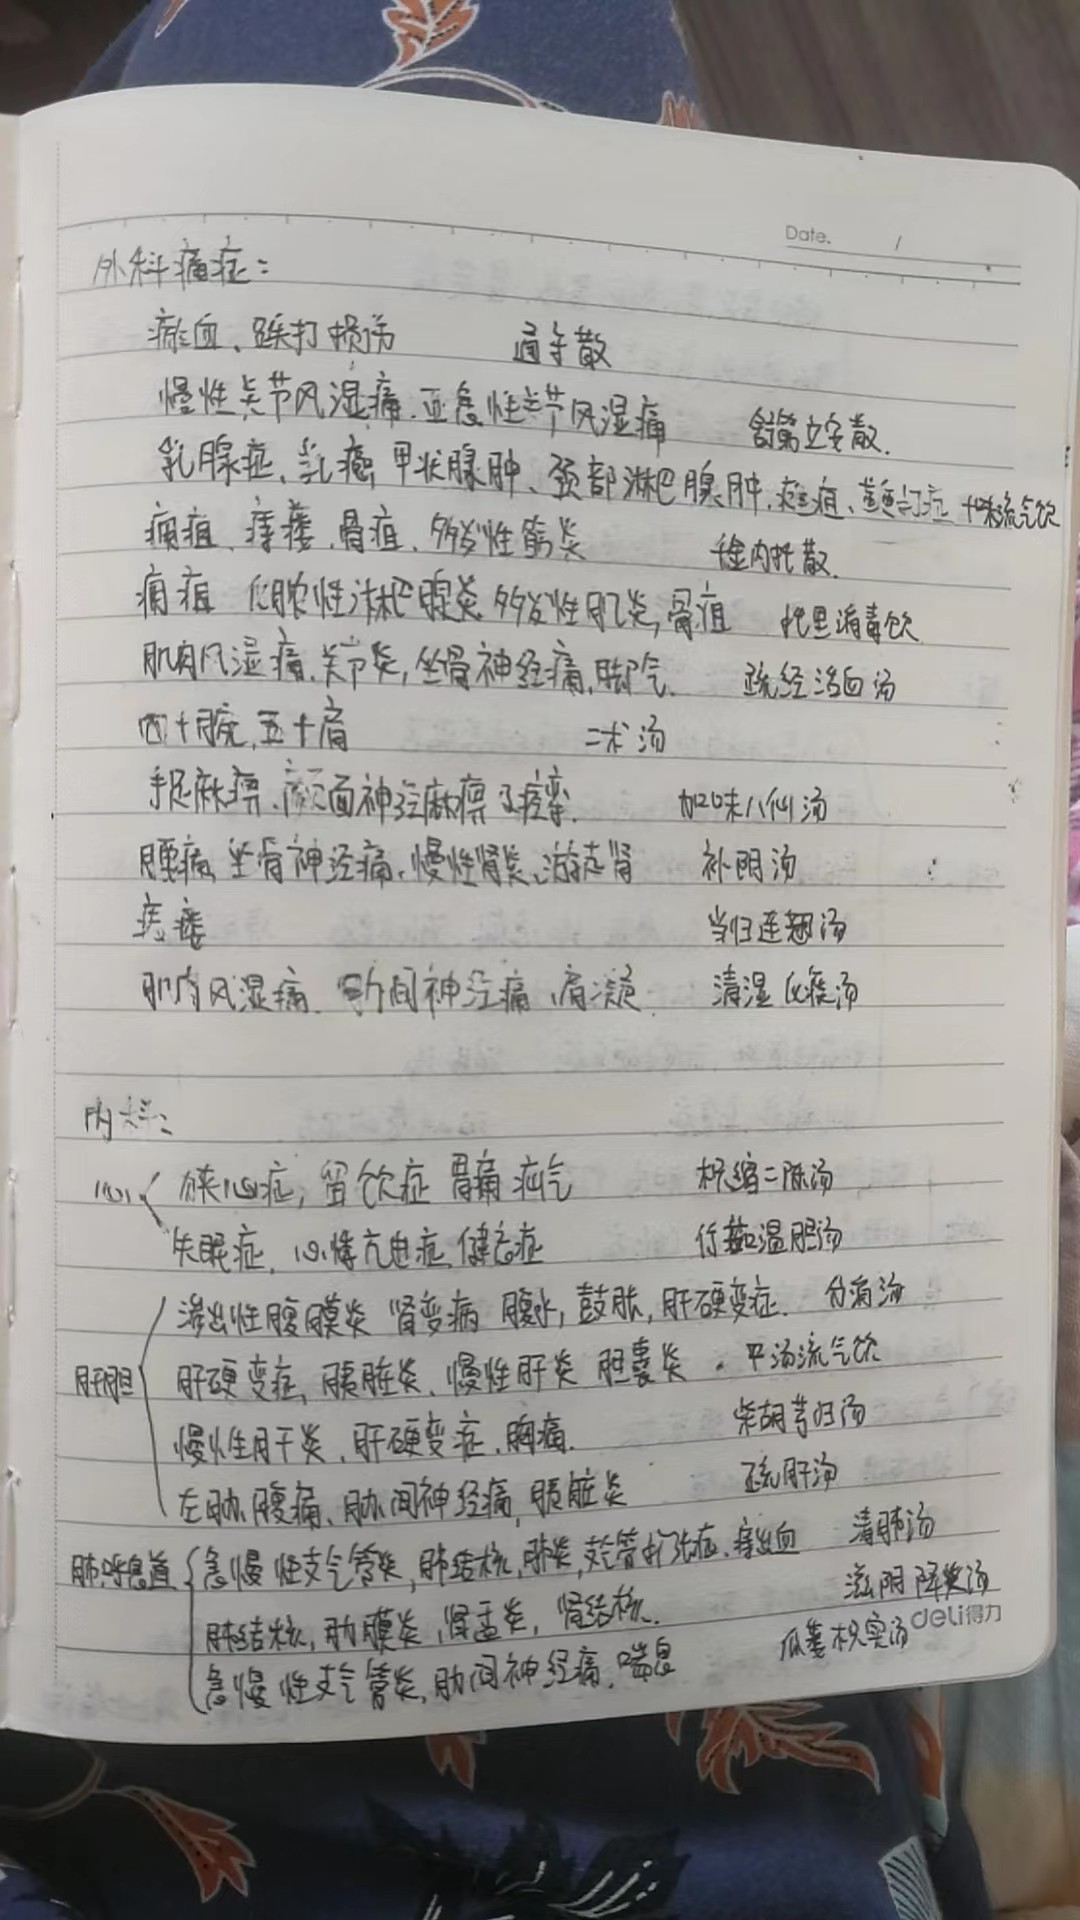 Date. /
外科痛症：
瘀血、跌打损伤 通导散
慢性关节风湿痛、亚急性关节风湿痛 舒筋立安散.
乳腺症、乳癌 甲状腺肿、颈部淋巴腺肿, 十味流气饮
痈疽、痔瘘、骨疽、多发性筋炎 千金内托散.
痈疽 化脓性淋巴腺炎 多发性肌炎, 骨疽 托里消毒饮
肌肉风湿痛、关节炎, 坐骨神经痛, 脚气. 疏经活血汤
四十腕, 五十肩 二术汤
手足麻痹、颜面神经麻痹 痉挛. 加味八仙汤
腰痛 坐骨神经痛、慢性肾炎、游走肾 补阴汤
痔瘘 当归连翘汤
肌肉风湿痛、肋间神经痛、肩凝 清湿化痰汤
内科：
心 狭心症, 留饮症 胃痛 疝气 枳缩二陈汤
失眠症, 心悸亢进症 健忘症 竹茹温胆汤
渗出性腹膜炎 肾变病 腹水, 鼓胀, 肝硬变症. 分消汤
肝胆 肝硬变症, 胰脏炎、慢性肝炎 胆囊炎. 平汤流气饮
慢性肝炎、肝硬变症、胸痛. 柴胡芎归汤
左肋腹痛、肋间神经痛, 胰脏炎 疏肝汤
肺呼息道 急慢性支气管炎, 肺结核, 肺炎, 支气管扩张症、 清肺汤
肺结核, 肋膜炎, 肾盂炎, 肾结核. 滋阴降炎汤
急慢性支气管炎, 肋间神经痛、喘息 瓜蒌枳实汤
deli得力